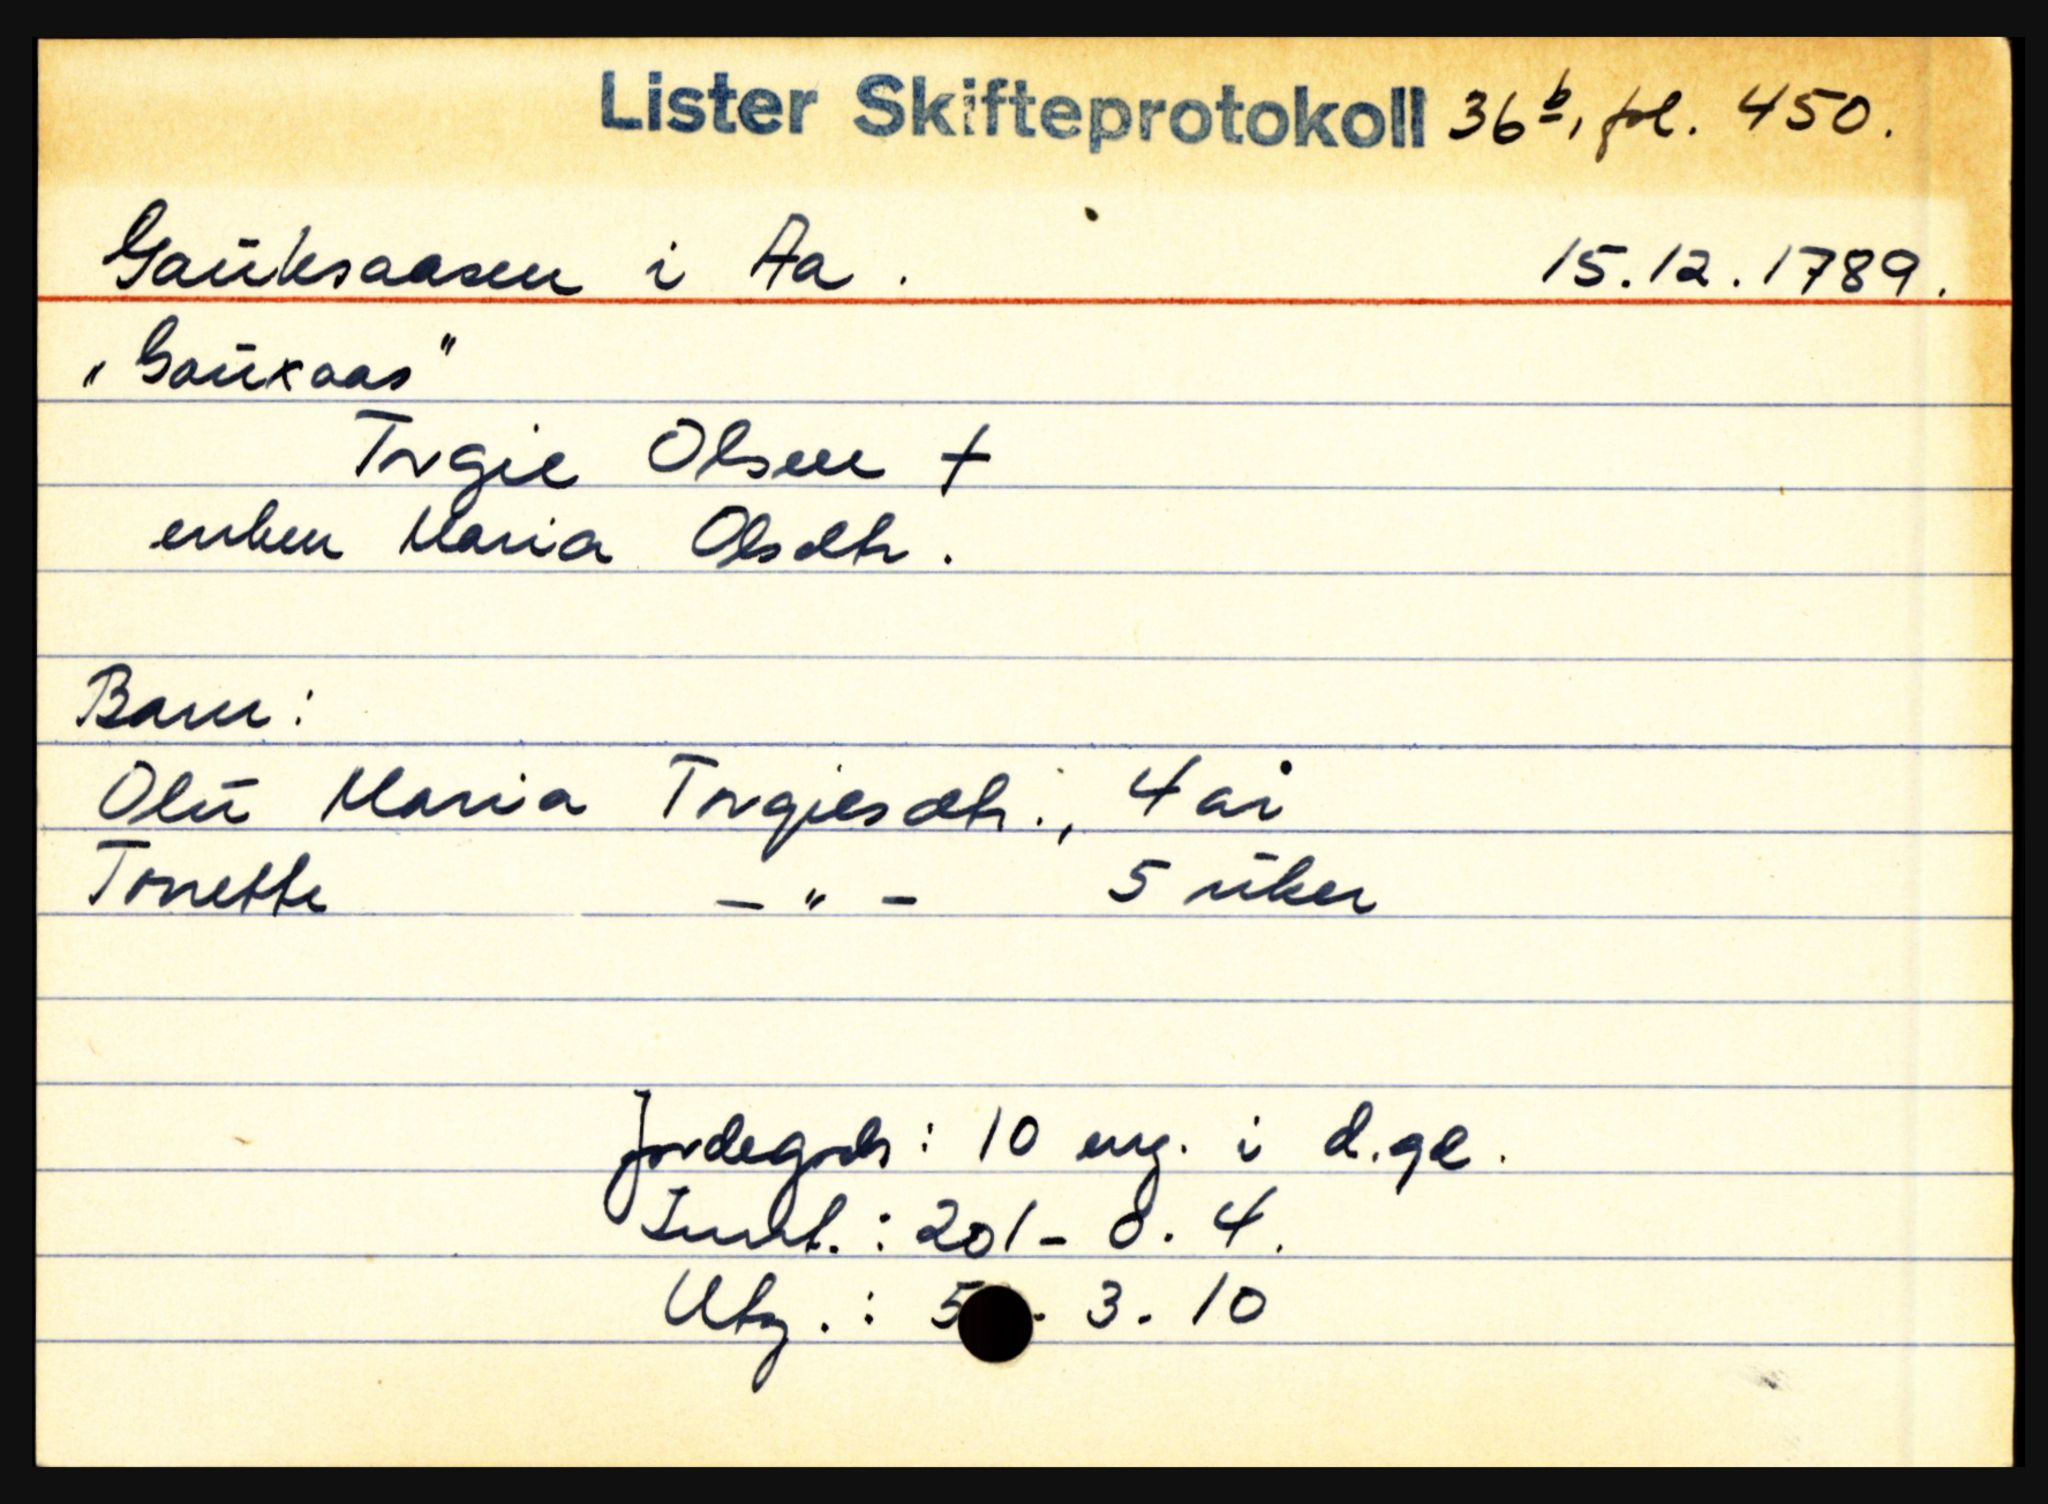 Lister Skifteprotokoll 36b, fol. 450.
Gauksaasen i Aa. 15.12.1789.
"Gauxaas"
Torgie Olsen +
enken Maria Olsdtr.
Barn:
Olu Maria Torgiesdtr., 4 år
Tonette - " - 5 uker
Jordegods: 10 eng. i d.gd.
Innt.: 201 - 0. 4.
Utg.: 5 . 3. 10